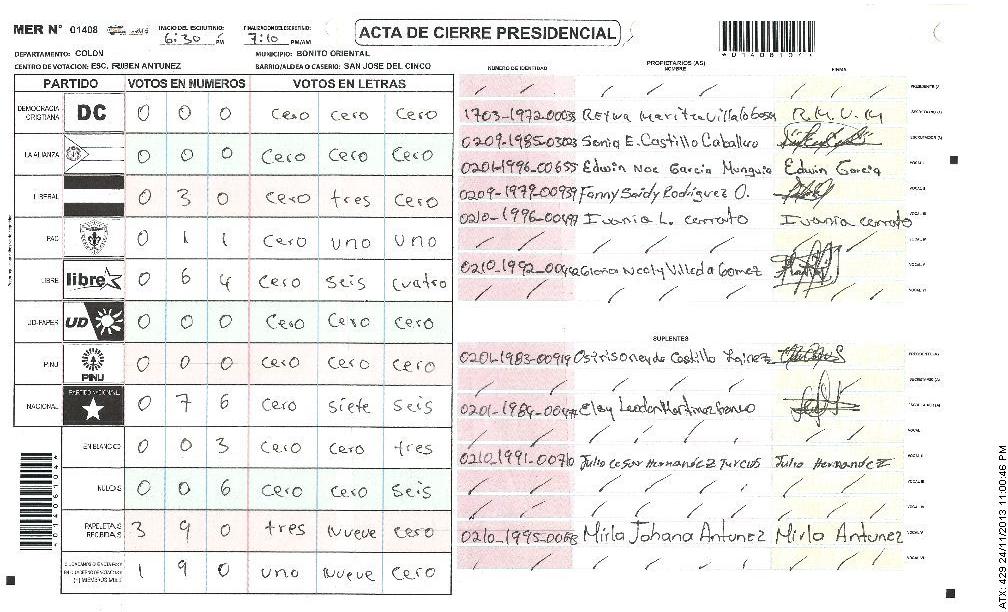 MER N° 01408 INICIO DEL ESCRUTINIO: 6:30 PM FINALIZACION DEL ESCRUTINIO: 7:10 PM/AM ACTA DE CIERRE PRESIDENCIAL
DEPARTAMENTO: COLON MUNICIPIO: BONITO ORIENTAL
CENTRO DE VOTACION: ESC. RUBEN ANTUNEZ BARRIO/ALDEA O CASERIO: SAN JOSE DEL CINCO
PARTIDO VOTOS EN NUMEROS VOTOS EN LETRAS
DEMOCRACIA CRISTIANA DC 0 0 0 Cero Cero Cero
LA ALIANZA 0 0 0 Cero Cero Cero
LIBERAL 0 3 0 Cero tres Cero
PAC 0 1 1 Cero uno uno
LIBRE libre 0 6 4 Cero Seis Cuatro
UD-FAPER UD 0 0 0 Cero Cero Cero
PINU PINU 0 0 0 Cero Cero Cero
NACIONAL PARTIDO NACIONAL 0 7 6 Cero siete seis
EN BLANCO 0 0 3 Cero cero tres
NULOS 0 0 6 Cero Cero Seis
PAPELETAS RECIBIDAS 3 9 0 tres Nueve Cero
1 9 0 uno Nueve Cero
NUMERO DE IDENTIDAD PROPIETARIOS (AS) NOMBRE FIRMA
PRESIDENTE (A)
1703-1972-00035 Reina Maritza Villalobos R.M.V.M SECRETARIO (A)
0209-1985-0303 Sonia E. Castillo Caballero ESCRUTADOR (A)
0201-1996-00655 Edwin Noe Garcia Munguia Edwin Garcia VOCAL I
0209-1979-00939 Fanny Saidy Rodriguez O. VOCAL II
0210-1996-00497 Ivania L. Cerrato Ivania cerrato VOCAL III
VOCAL IV
Gloria Nealy Villeda Gomez VOCAL V
VOCAL VI
SUPLENTES
0201-1983-00919 Castillo PRESIDENTE (A)
SECRETARIO (A)
VOCAL I
0210-1991-00710 Julio Cesar Hernandez Turcios Julio Hernandez VOCAL II
VOCAL III
Mirla Johana Antunez Mirla Antunez VOCAL V
VOCAL VI
ATX: 429 24/11/2013 11:00:46 PM